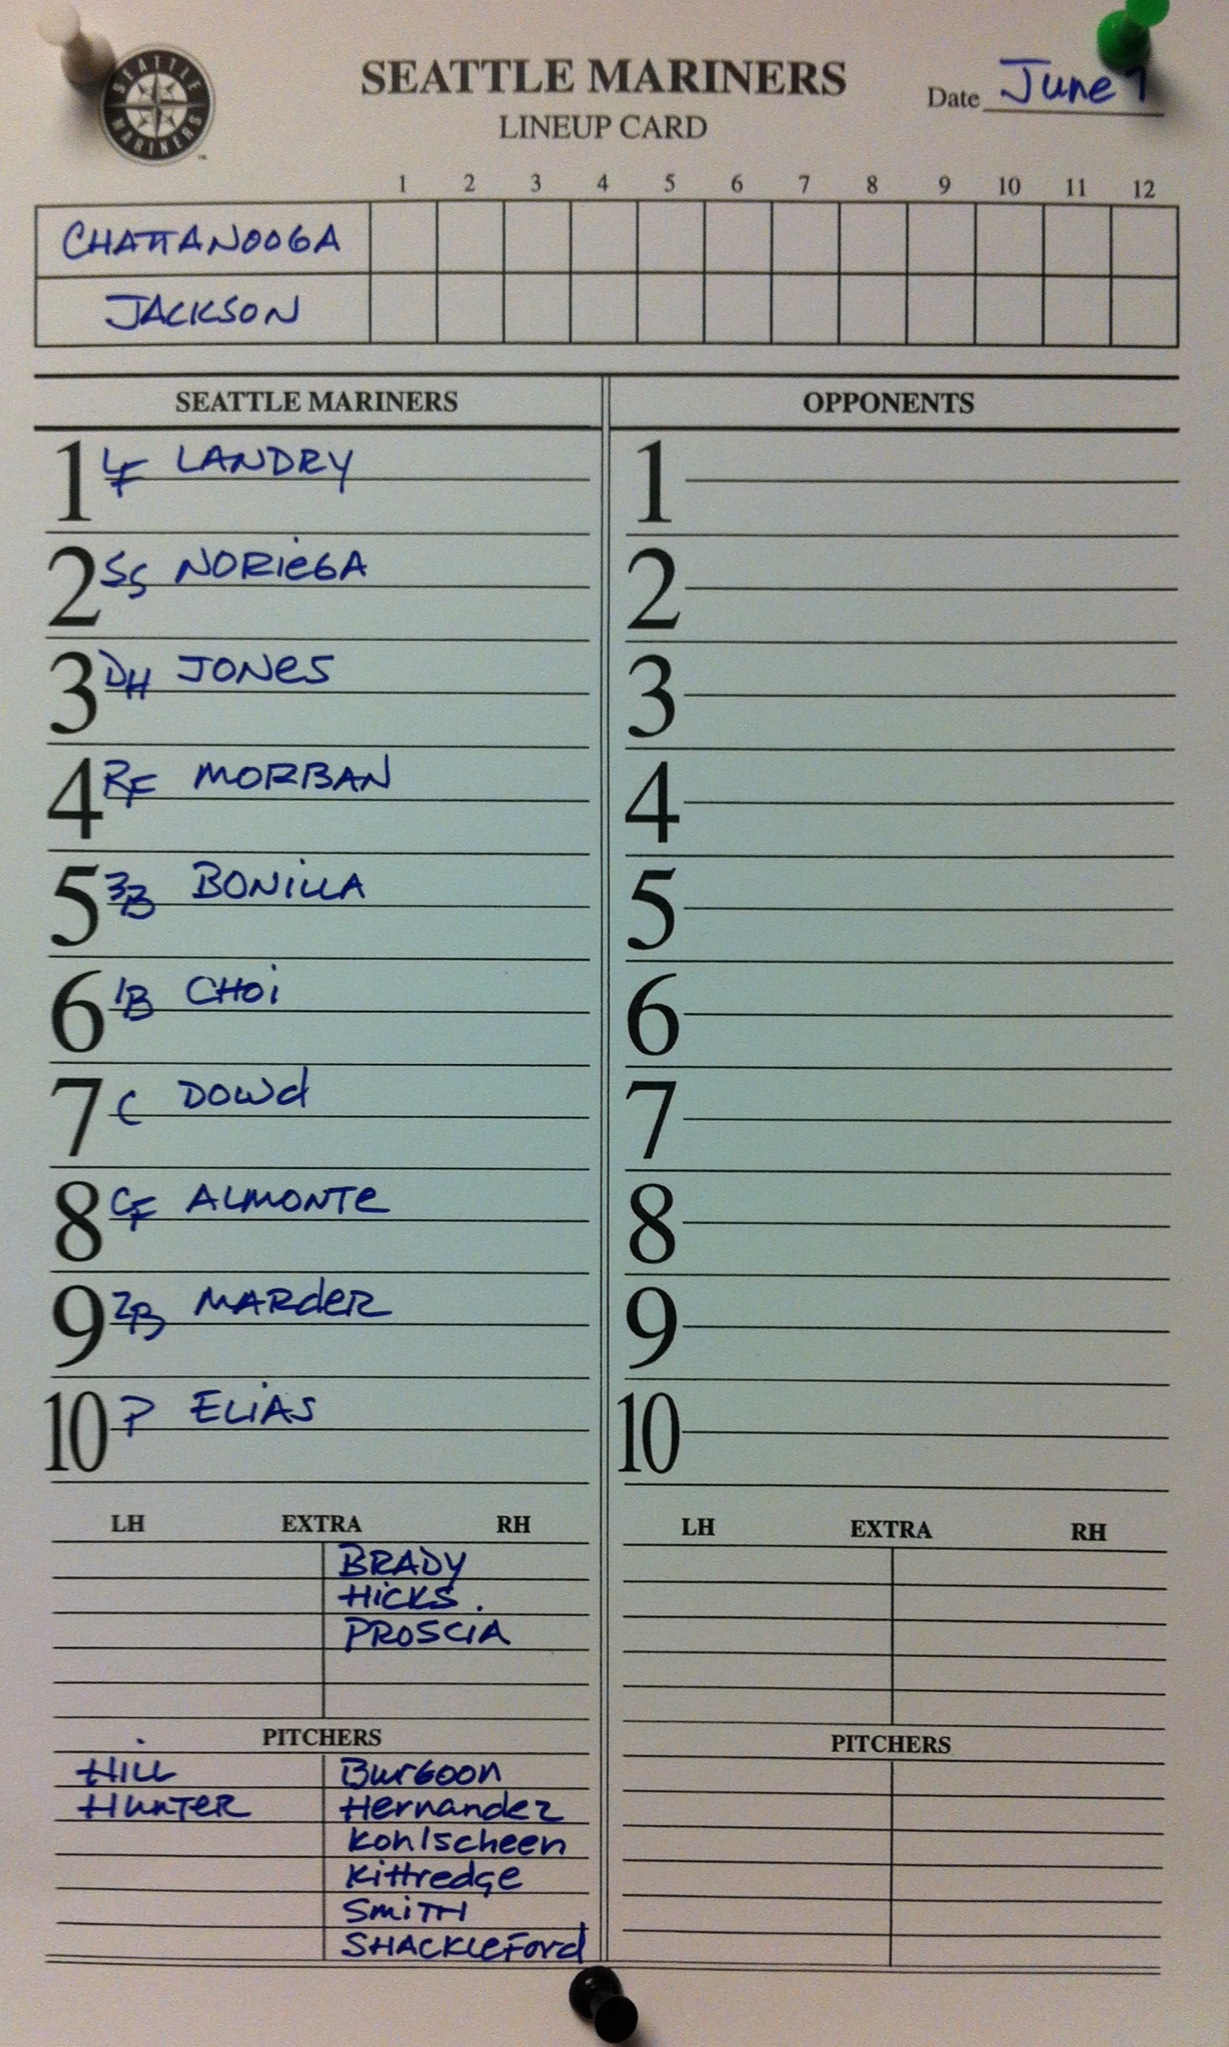 SEATTLE MARINERS
SEATTLE MARINERS
LINEUP CARD
Date June 7
1 2 3 4 5 6 7 8 9 10 11 12
CHATTANOOGA
JACKSON
SEATTLE MARINERS
1 LF LANDRY
2 SS NORIEGA
3 DH JONES
4 RF MORBAN
5 3B BONILLA
6 1B CHOI
7 C DOWD
8 CF ALMONTE
9 2B MARDER
10 P ELIAS
LH EXTRA RH
BRADY
HICKS.
PROSCIA
PITCHERS
HILL Burgoon
HUNTER Hernandez
Kohlscheen
Kittredge
SMITH
SHACKLEFORD
OPPONENTS
1
2
3
4
5
6
7
8
9
10
LH EXTRA RH
PITCHERS